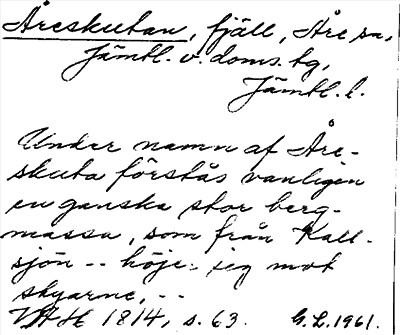 Åreskutan, fjäll, Åre sn,
Jämtl. v. doms. tg,
Jämtl. l.
Under namn af Åre-
skuta förstås vanligen
en ganska stor berg-
massa, som från Kall-
sjön -- höjer sig mot
skyarne, --
VAH 1814, s. 63. G. L. 1961.